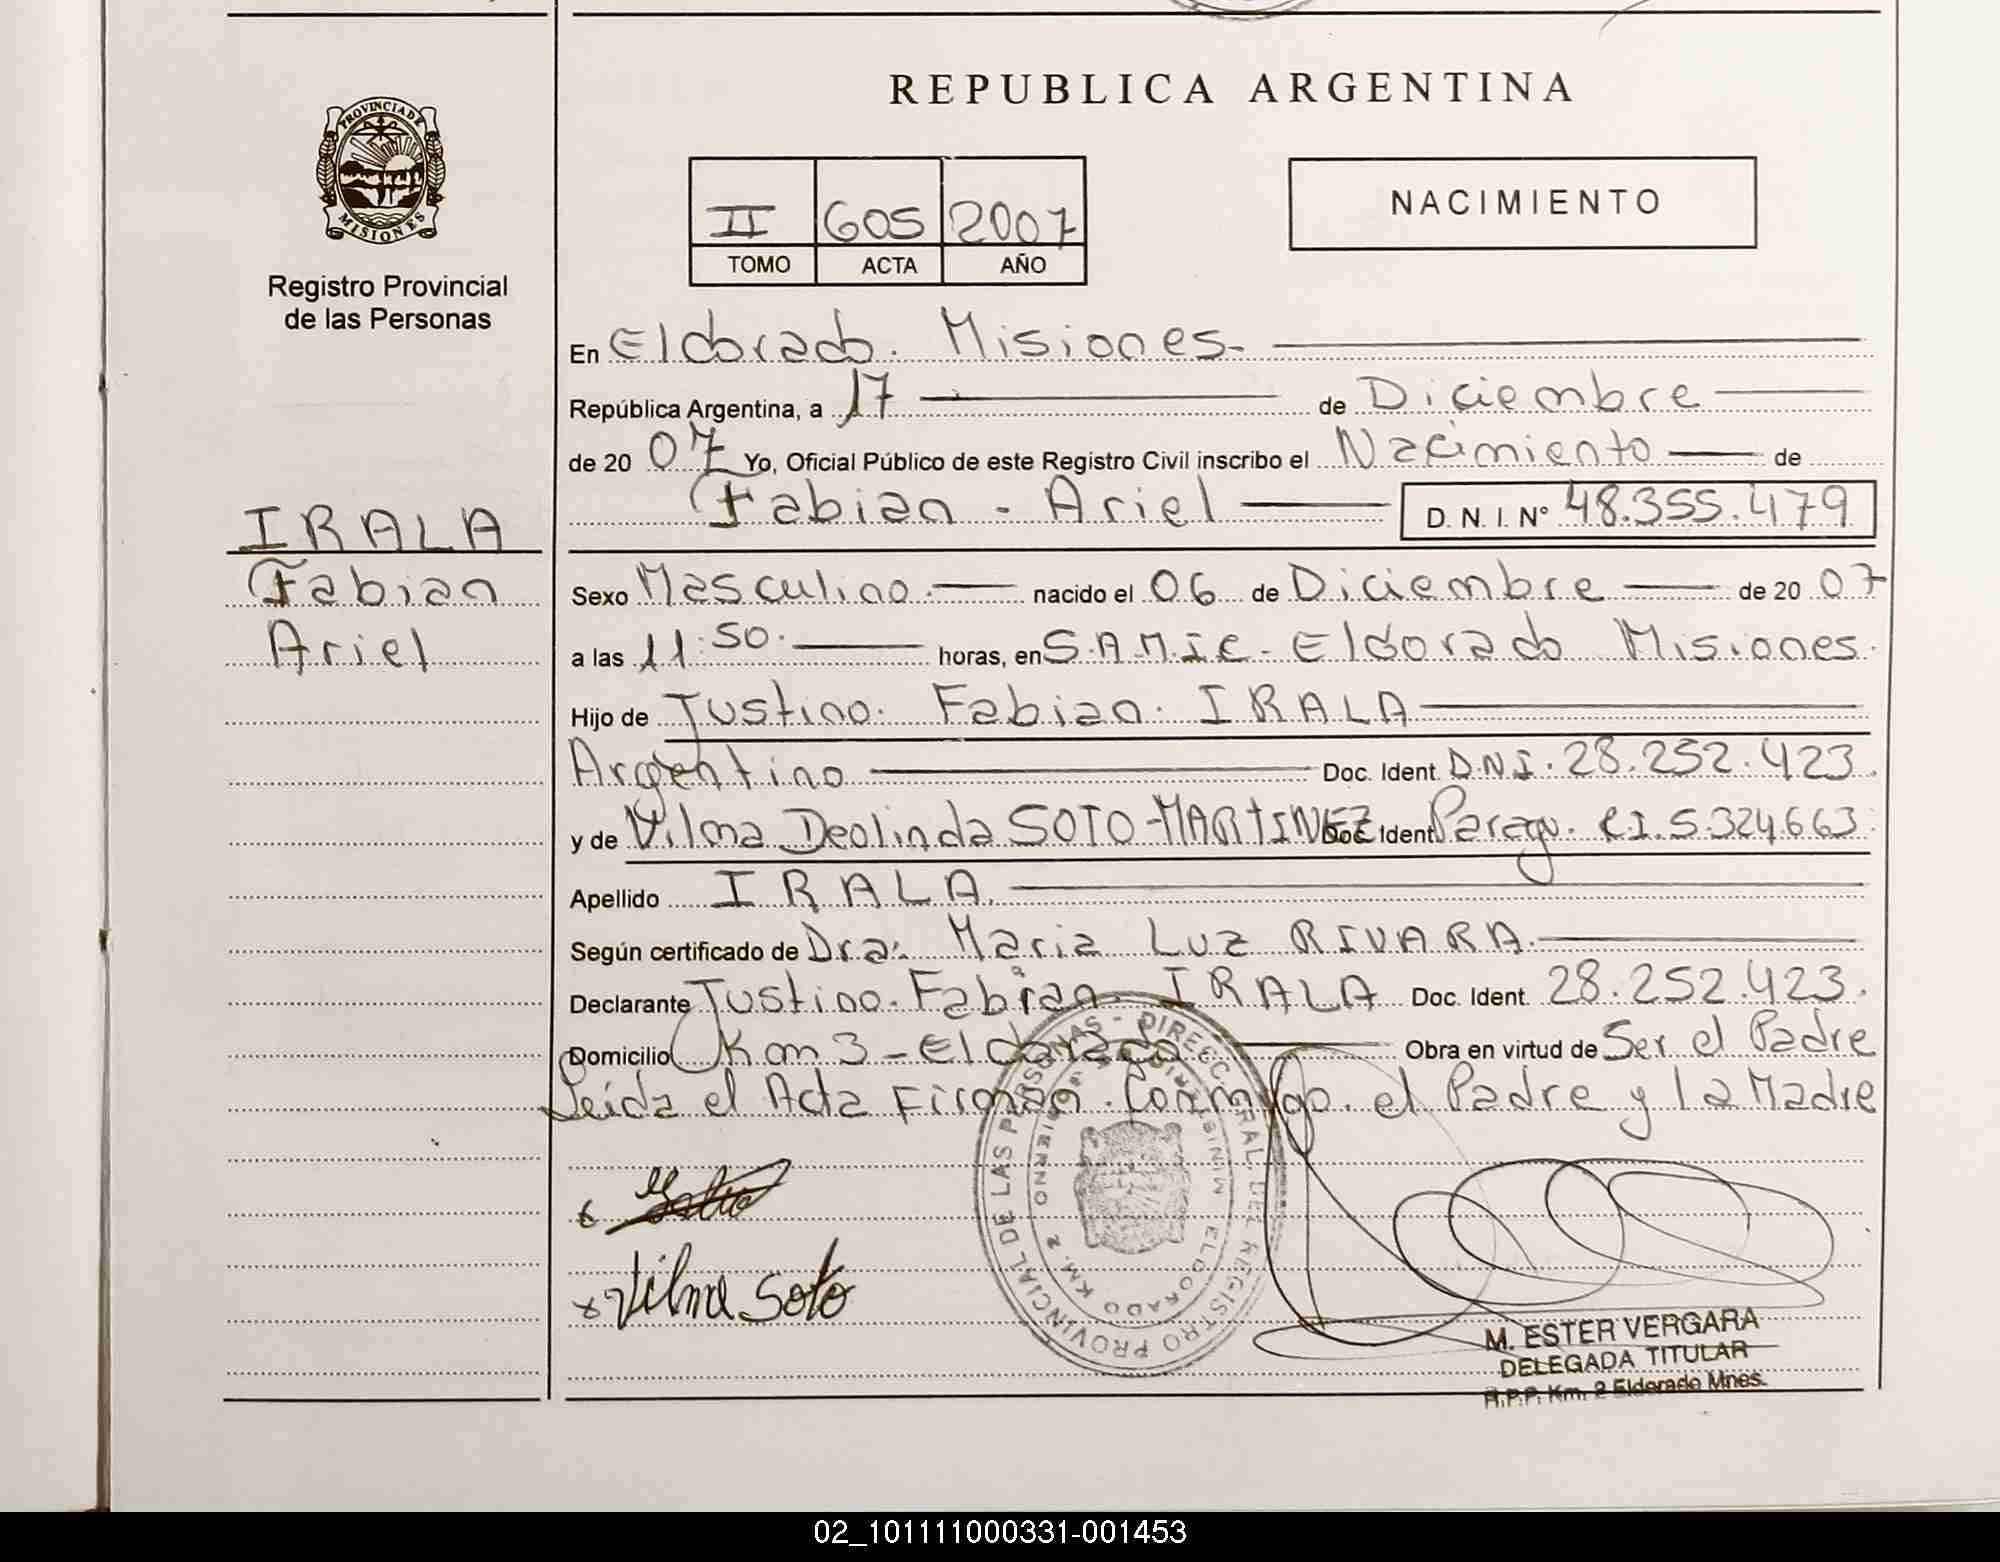 REPUBLICA ARGENTINA
PROVINCIA DE MISIONES
Registro Provincial
de las Personas
II 605 2007
TOMO ACTA AÑO
NACIMIENTO
En Eldorado. Misiones-
República Argentina, a 17 de Diciembre
de 20 07 Yo, Oficial Público de este Registro Civil inscribo el Nacimiento de
Fabian - Ariel D. N. I. Nº 48.355.479
IRALA
Fabian
Ariel
Sexo Masculino. nacido el 06 de Diciembre de 20 07
a las 11:50. horas, en S.A.M.I.C. Eldorado Misiones.
Hijo de Justino. Fabian. IRALA
Argentino Doc. Ident. D.N.I. 28.252.423.
y de Vilma Deolinda SOTO-MARTINEZ Doc. Ident. Paragu. C.I. 5.324.663
Apellido IRALA.
Según certificado de Dra: Maria Luz RIVARA.
Declarante Justino. Fabian. IRALA Doc. Ident. 28.252.423.
Domicilio Km 3 - Eldorado Obra en virtud de Ser el Padre
Leida el Acta Firman. Conmigo. el Padre y la Madre
Vilma Soto
DIRECC. GRAL. DEL REGISTRO PROVINCIAL DE LAS PERSONAS -
ELDORADO KM. 2
M. ESTER VERGARA
DELEGADA TITULAR
R.P.P. Km. 2 Eldorado Mnes.
02_101111000331-001453